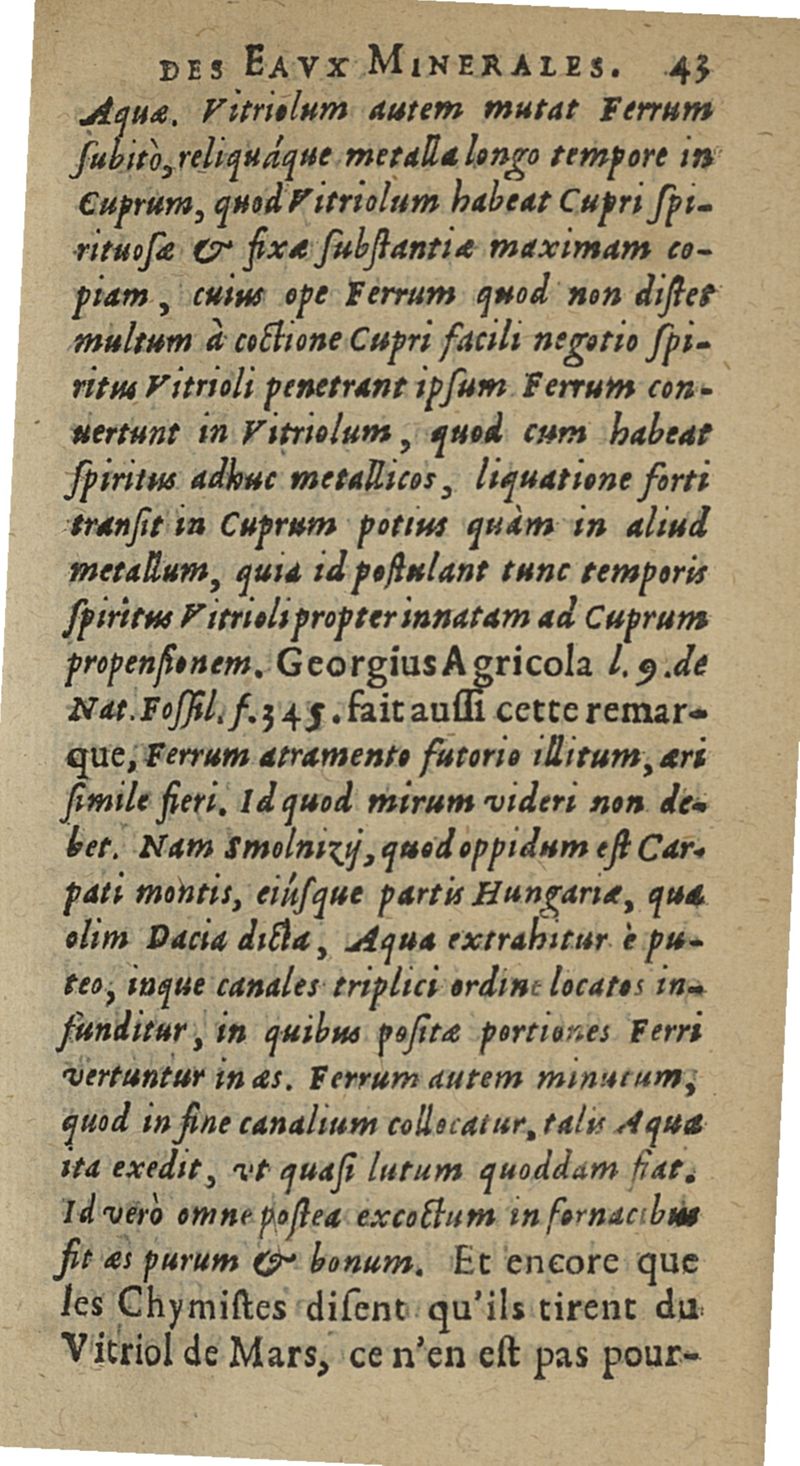 DES EAVX MINERALES. 43
Aquæ. Vitriolum autem mutat Ferrum
ſubitò, reliquáque metalla longo tempore in
Cuprum, quod Vitriolum habeat Cupri ſpi-
rituoſæ & fixæ ſubſtantiæ maximam co-
piam, cuius ope Ferrum quod non diſtet
multum à coctione Cupri facili negotio ſpi-
ritus Vitrioli penetrant ipſum Ferrum con-
uertunt in Vitriolum, quod cum habeat
ſpiritus adhuc metallicos, liquatione forti
tranſit in Cuprum potius quàm in aliud
metallum, quia id poſtulant tunc temporis
ſpiritus Vitrioli propter innatam ad Cuprum
propenſionem. Georgius Agricola l. 9. de
Nat. Foſſil. f. 345. fait auſſi cette remar-
que, Ferrum atramento ſutorio illitum, æri
ſimile fieri. Id quod mirum videri non de-
bet. Nam Smolnizij, quod oppidum eſt Car-
pati montis, eiúſque partis Hungariæ, quæ
olim Dacia dicta, Aqua extrahitur è pu-
teo, inque canales triplici ordine locatos in-
funditur, in quibus poſitæ portiones Ferri
vertuntur in æs. Ferrum autem minutum,
quod in fine canalium collocatur, talis Aqua
ita exedit, vt quaſi lutum quoddam fiat.
Id verò omne poſtea excoctum in fornacibus
fit æs purum & bonum. Et encore que
les Chymiſtes diſent qu'ils tirent du
Vitriol de Mars, ce n'en eſt pas pour-